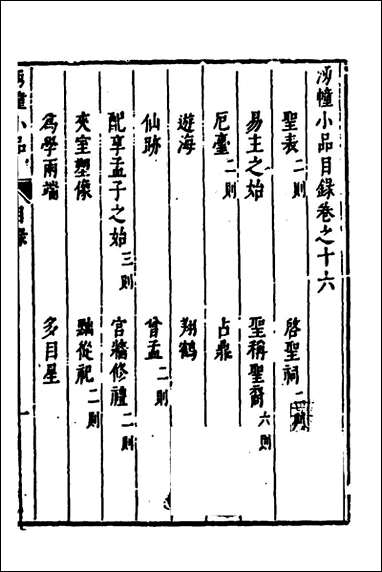 湧幢小品目錄卷之十六
聖表二則 啓聖祠二則
易主之始 聖稱聖裔六則
厄臺二則 占鼎
遊海 翔鶴
仙跡 曾孟二則
配享孟子之始三則 宮牆修禮二則
夾室塑像 黜從祀二則
為學兩端 多目星
湧幢小品 目錄 一